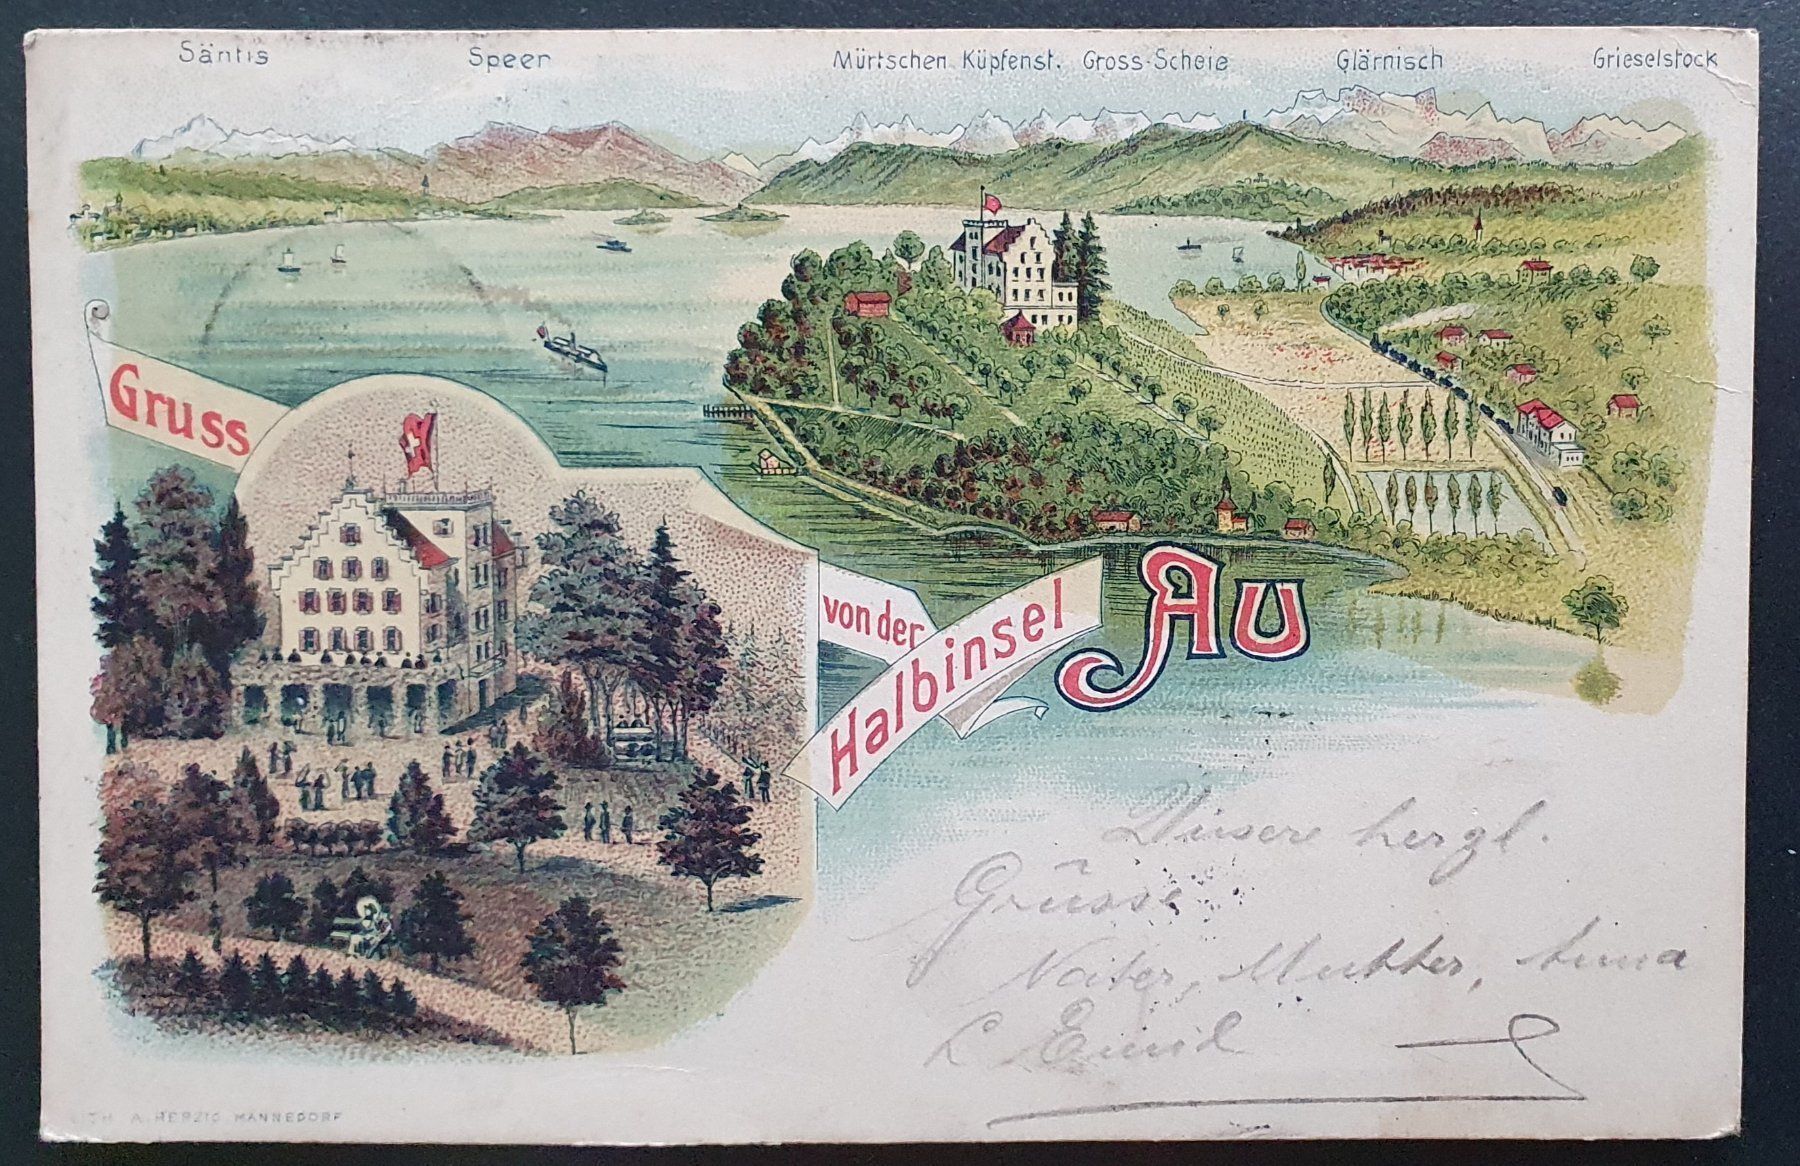 Säntis Speer Mürtschen Küpfenst. Gross-Scheie Glärnisch Grieselstock
Gruss
von der
Halbinsel
Au
Unsere herzl.
Grüsse
Vater, Mutter, Anna
& Emil
LITH. A. HERZIG MÄNNEDORF